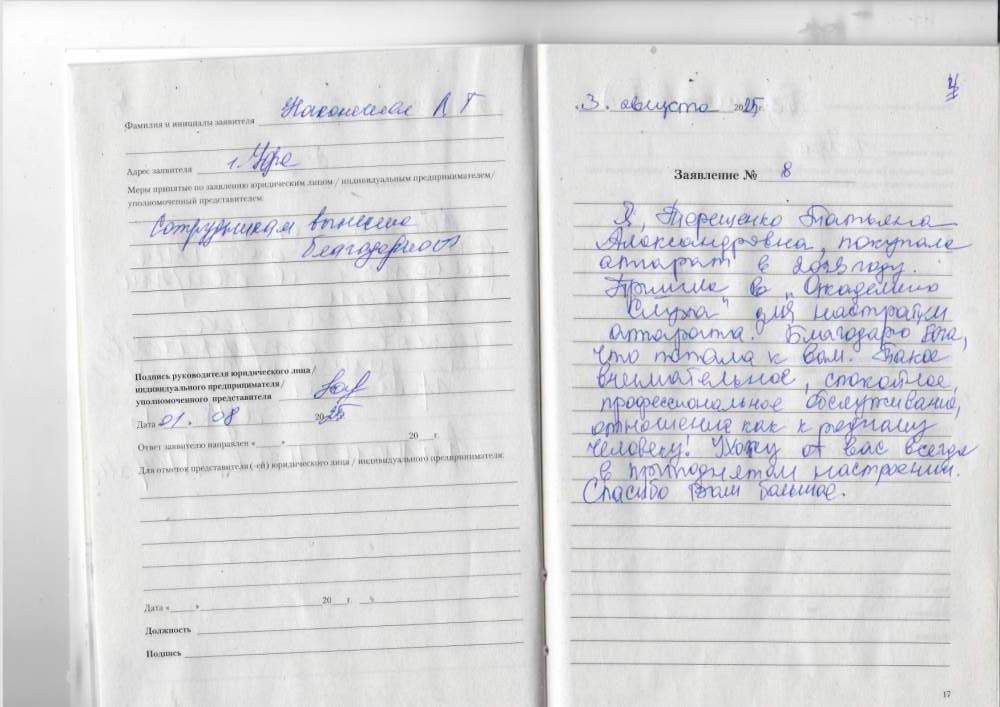 Фамилия и инициалы заявителя Наконечная Л Г
Адрес заявителя г. Уфа
Меры принятые по заявлению юридическим лицом / индивидуальным предпринимателем/
уполномоченный представителем
Сотрудникам вынесена
благодарность
Подпись руководителя юридического лица /
индивидуального предпринимателя /
уполномоченного представителя
Дата 01. 08 2025
Ответ заявителю направлен « » 20 г.
Для отметок представителя (-ей) юридического лица / индивидуального предпринимателя:
Дата « » 20 г.
Должность
Подпись
« 3. августа 2025г.
Заявление № 8
Я, Терещенко Татьяна
Александровна, покупала
аппарат в 2023 году.
Пришла в „Академию
Слуха" для настройки
аппарата. Благодарю Бога,
что попала к вам. Такое
внимательное, спокойное,
профессиональное обслуживание,
отношение как к родному
человеку! Ухожу от вас всегда
в приподнятом настроении.
Спасибо Вам большое.
17